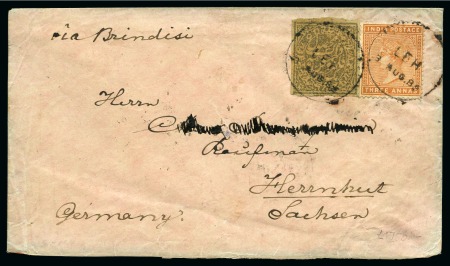 via Brindisi
INDIA POSTAGE
THREE ANNAS
LEH
AUG.
LEH
AUG.
Herrn
Kaufmann
Herrnhut
Germany.
Sachsen